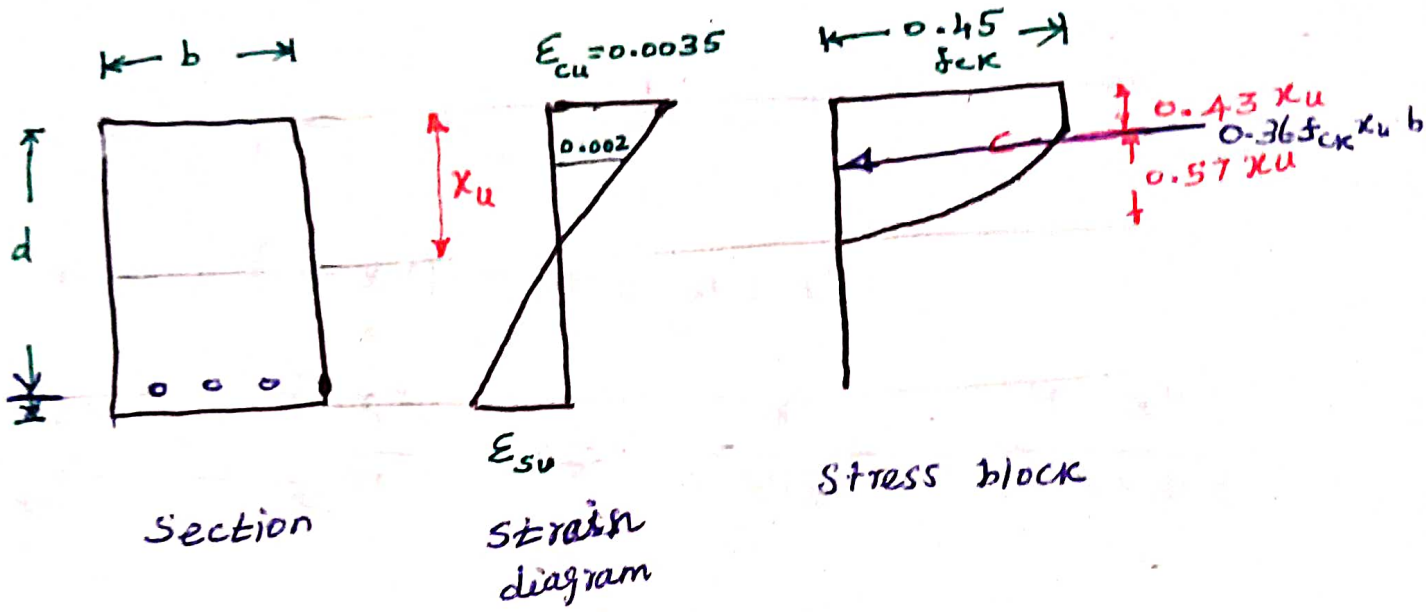 b
d
Section
Ɛcu=0.0035
0.002
xu
Ɛsu
Strain
diagram
0.45
fck
0.43 xu
C
0.36 fck xu b
0.57 xu
Stress block